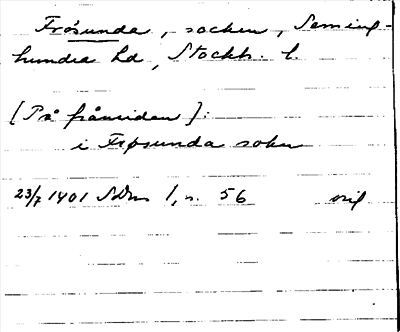 Frösunda, socken, Seming-
hundra hd, Stockh. l.
[På frånsidan]:
i Frøsunda sokn
23/7 1401 SDns 1, n. 56 oril